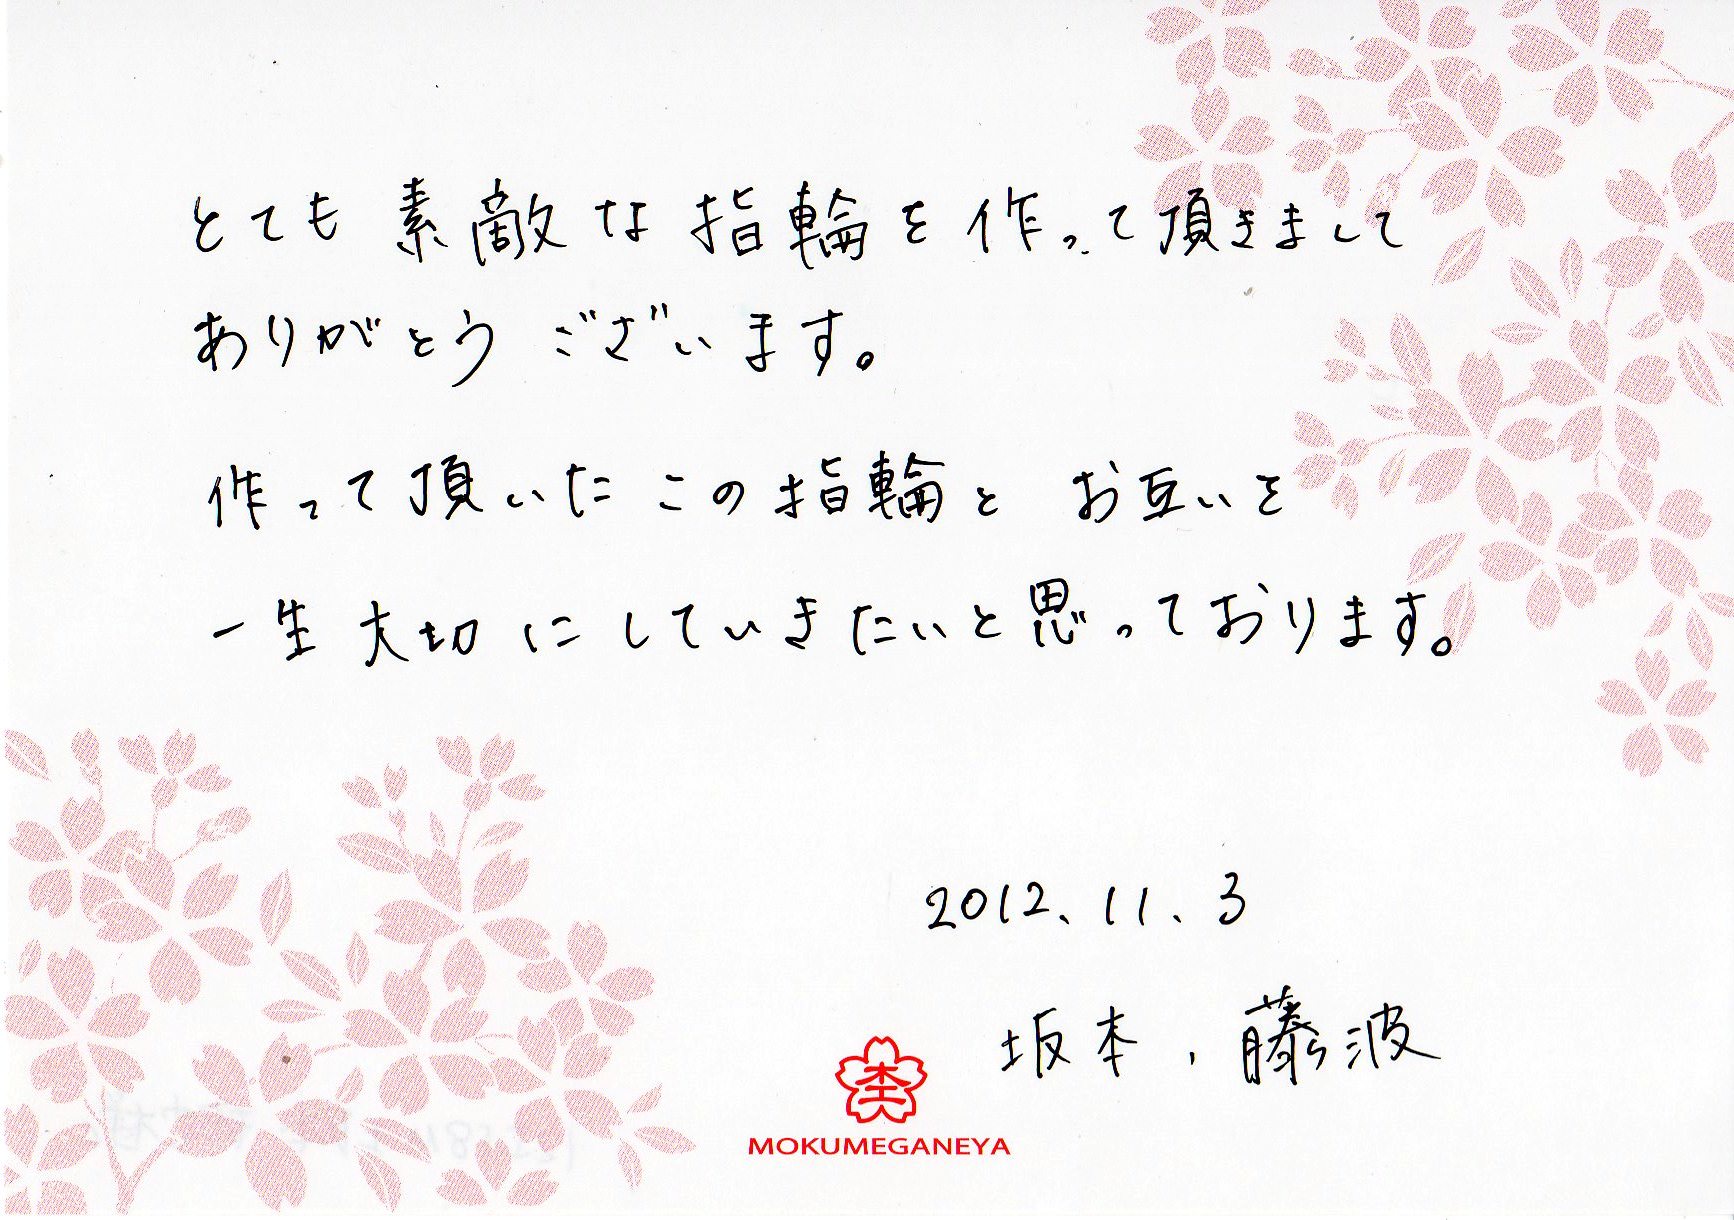 とても素敵な指輪を作って頂きまして
ありがとうございます。
作って頂いたこの指輪とお互いを
一生大切にしていきたいと思っております。
2012、11、3
坂本、藤波
MOKUMEGANEYA